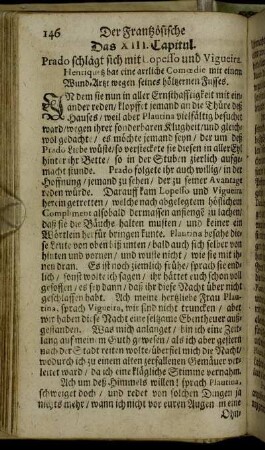 146
Der Frantzösische
Das XIII. Capitul.
Prado schlägt sich mit Lopesso und Vigueira.
Henriquetz hat eine artliche Comœdie mit einem
Wund-Artzt wegen seines höltzernen Fusses.
INdem sie nun in aller Ernsthafftigkeit mit ein-
ander reden/ klopffet jemand an die Thüre deß
Hauses/ weil aber Plautina vielfältig besucht
ward/ wegen ihrer sonderbaren Klugheit/ und gleich
wol gedacht/ es möchte jemand seyn/ der um deß
Prado Liebe wüste/ so versteckete sie diesen in aller Eyl
hinter ihr Bette/ so in der Stuben zierlich auffge-
macht stunde. Prado folgete ihr auch willig/ in der
Hoffnung/ jemand zu sehen/ der zu seiner Avantage
reden würde. Darauff kam Lopesso und Vigueira
herein getretten/ welche nach abgelegtem höflichem
Compliment alsobald dermassen anfienge zu lachen/
daß sie die Bäuche halten musten/ und keiner ein
Wörtlein herfür bringen kunte. Plautina besahe die-
se Leute von oben biß unten/ bald auch sich selber von
hinten und vornen/ und wuste nicht/ wie sie mit ih-
nen dran. Es ist noch ziemlich frühe/ sprach sie end-
lich/ sonst wolte ich sagen/ ihr hättet euch schon voll
gesoffen/ es sey dann/ daß ihr diese Nacht über nicht
geschlaffen habt. Ach meine hertzliebe Frau Plau-
tina, sprach Vigueira, wir sind nicht truncken/ aber
wir haben diese Nacht eine seltzame Ebentheuer auß-
gestanden. Was mich anlanget/ bin ich eine Zeit-
lang auf meinem Guth gewesen/ als ich aber gestern
nach der Stadt reiten wolte/ überfiel mich die Nacht/
wodurch ich zu einem alten zerfallenen Gemäuer ver-
leitet ward/ da ich eine klägliche Stimme vernahm.
Ach um deß Himmels willen! sprach Plautina,
schweiget doch/ und redet von solchen Dingen ja
nichts mehr/ wann ich nicht vor euren Augen in eine
Ohn-